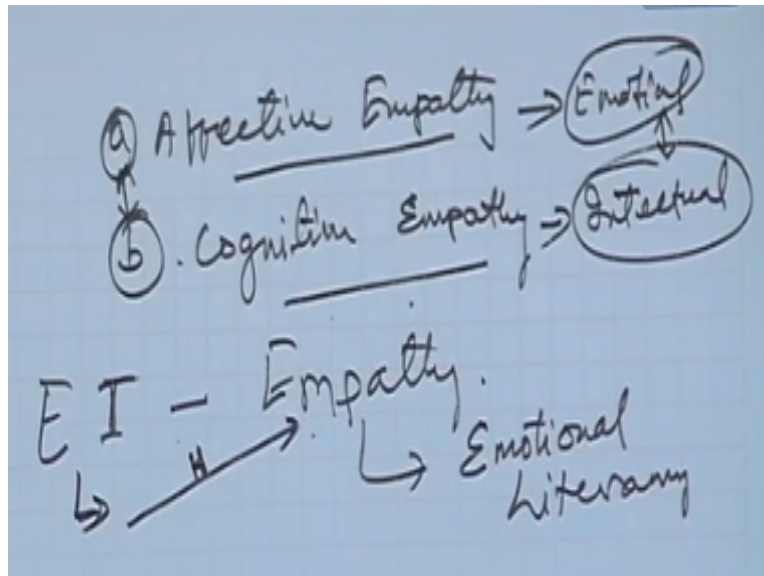 a Affective Empathy → Emotional
b. Cognitive Empathy → Intectual
EI - Empathy.
H
↳ Emotional
Literary